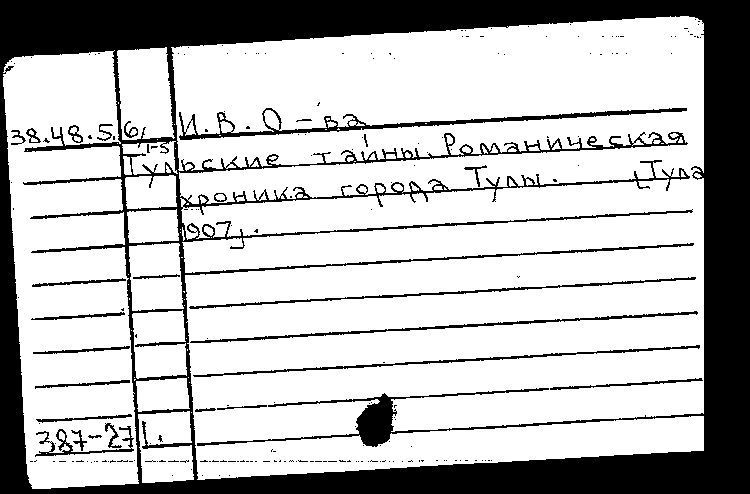 38.48.5.6, И. В. О-ва
1-5
Тульские тайны. Романическая
хроника города Тулы. [Тула
1907].
387-27 L.